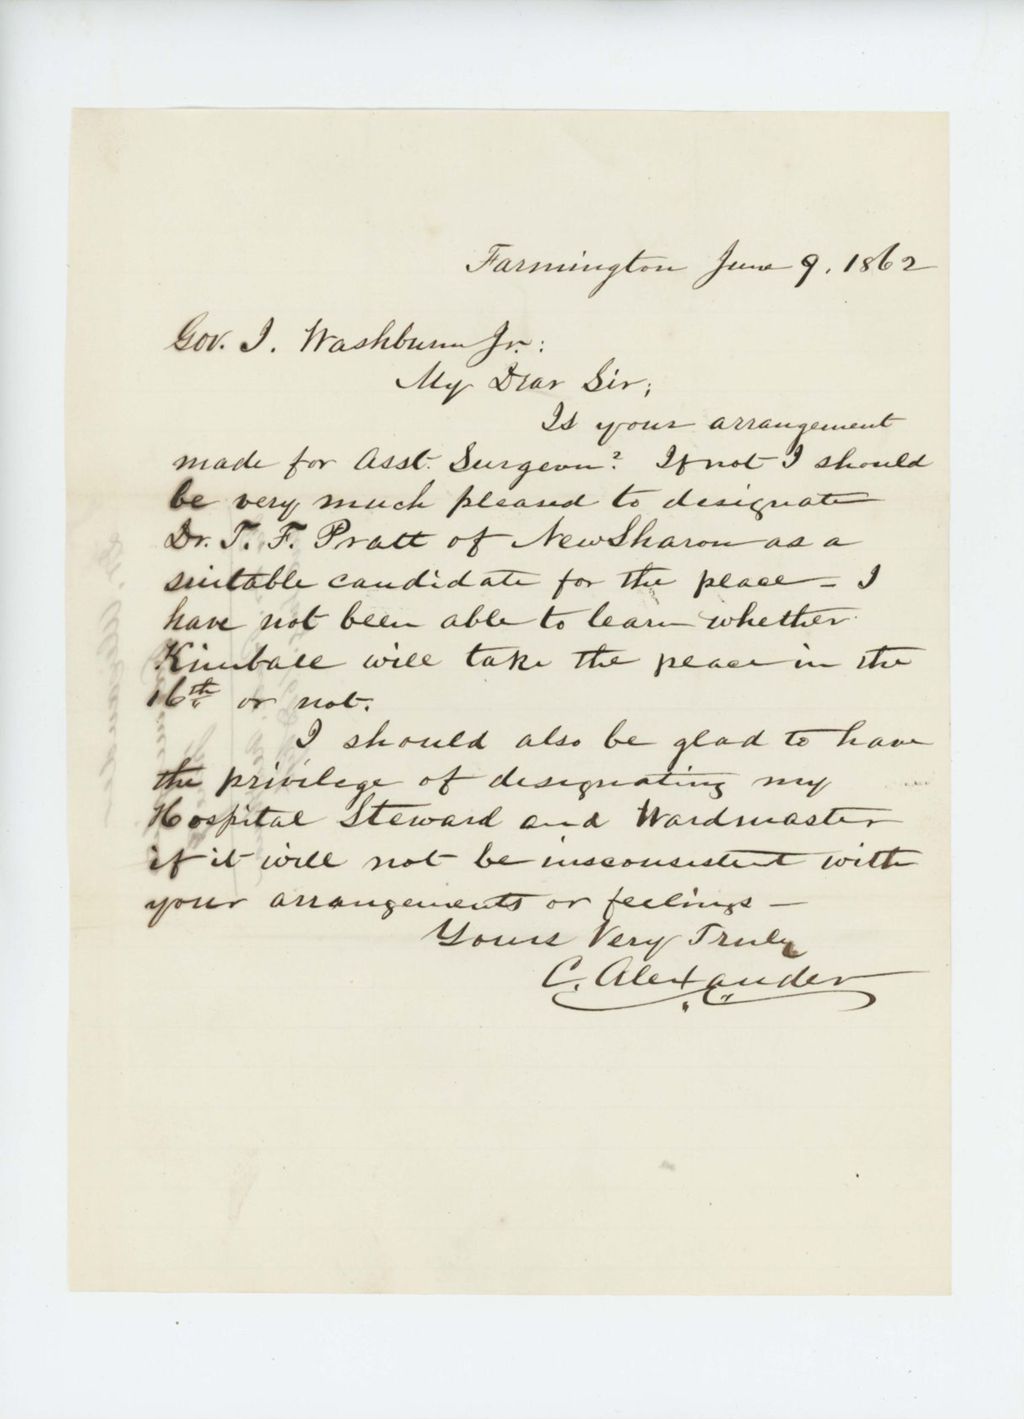 Farmington June 9, 1862
Gov. I. Washburn Jr.:
My Dear Sir;
Is your arrangement
made for Asst. Surgeon? If not I should
be very much pleased to designate
Dr. T. F. Pratt of New Sharon as a
suitable candidate for the place – I
have not been able to learn whether
Kimball will take the place in the
16th or not.
I should also be glad to have
the privilege of designating my
Hospital Steward and Wardmaster
if it will not be insconsistent with
your arrangements or feelings –
Yours Very Truly
C. Alexander